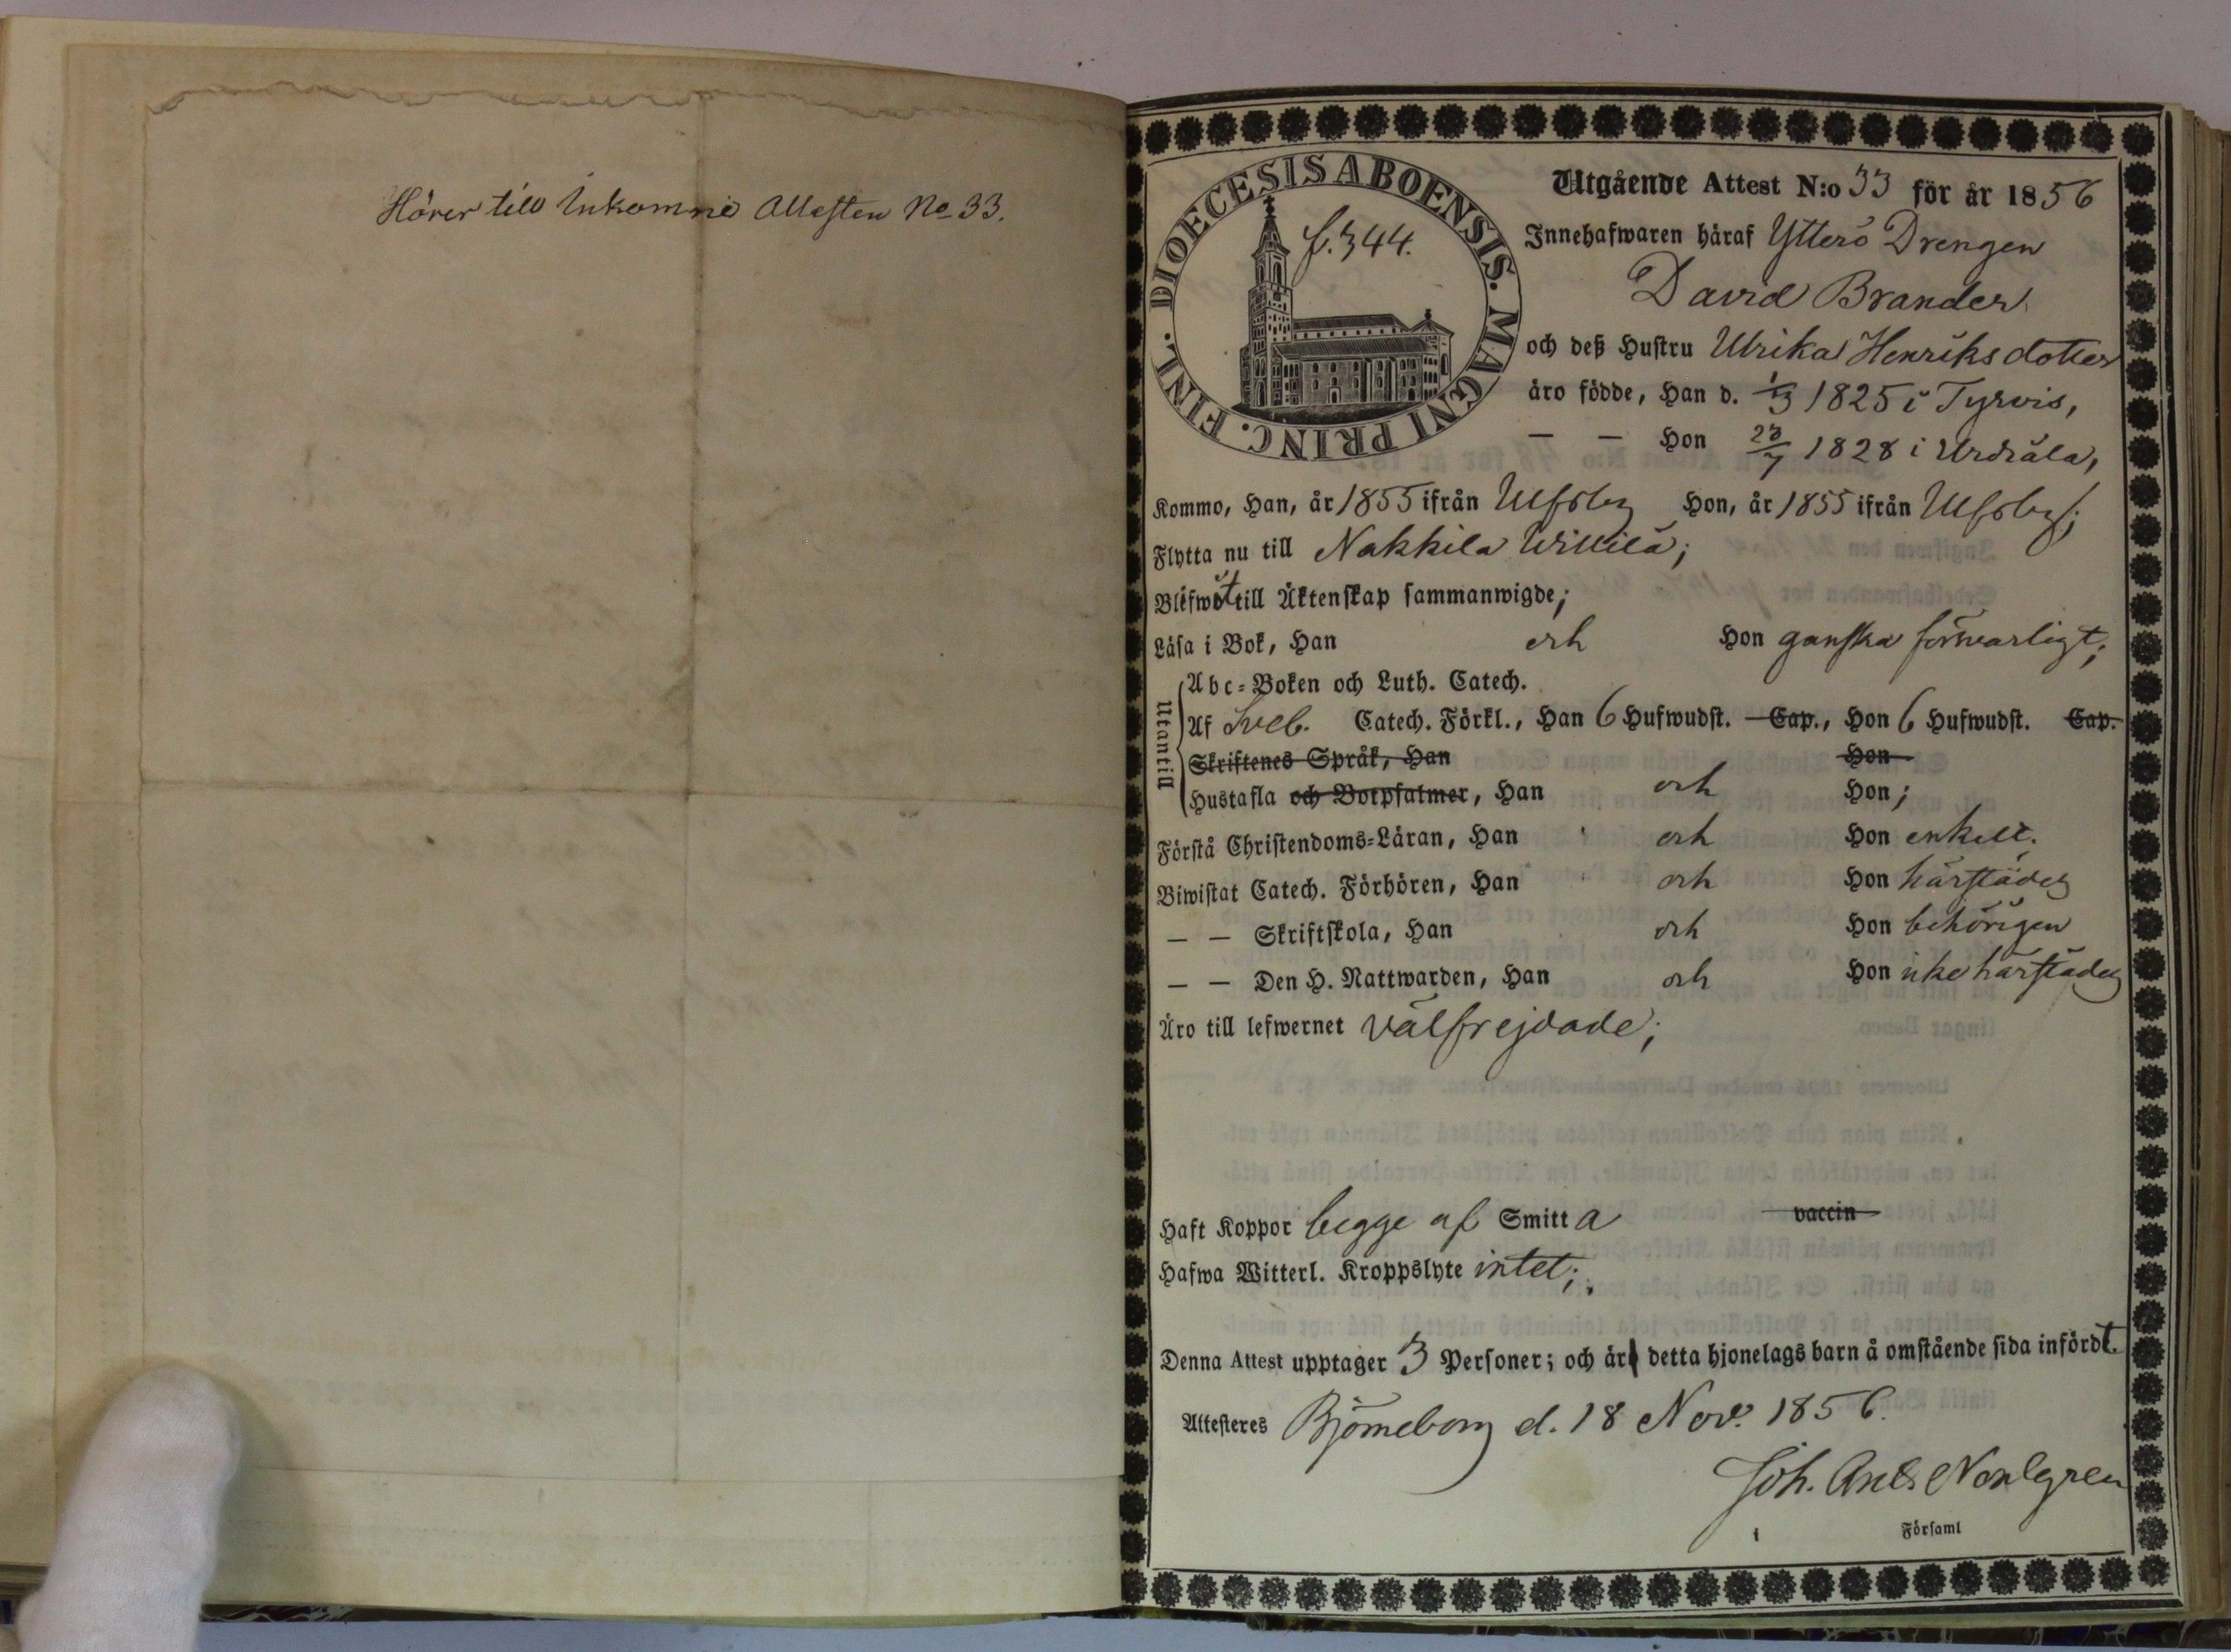 Hörer till Inkomne Attesten No 33.
DIOECESIS ABOENSIS. MAGNI PRINC. FINL.
f. 344.
Utgående Attest N:o 33 för år 1856
Innehafwaren häraf Ytterö Drengen
David Brander
och deß Hustru Ulrika Henriksdotter
äro födde, Han d. 1/3 1825 i Tyrvis,
— — Hon 23/7 1828 i Urdiala,
Kommo, Han, år 1855 ifrån Ulfsby Hon, år 1855 ifrån Ulfsby;
Flytta nu till Nakkila Willilä;
till Äktenskap sammanwigde;
Läsa i Bok, Han och Hon ganska förswarligt;
Utantill
Abc-Boken och Luth. Catech.
Af Sveb. Catech. Förkl., Han 6 Hufwudst. Cap., Hon 6 Hufwudst. Cap.
Skriftenes Språk, Han Hon
Hustafla och Botpsalmer, Han och Hon;
Förstå Christendoms-Läran, Han och Hon enkelt.
Biwistat Catech. Förhören, Han och Hon härstädes
— — Skriftskola, Han och Hon behörigen
— — Den H. Nattwarden, Han och Hon icke härstädes
Äro till lefwernet välfrejdade;
Haft Koppor begge af Smitta vaccin
Hafwa Witterl. Kroppslyte intet;
Denna Attest upptager 3 Personer; och är detta hjonelags barn å omstående sida infördt.
Attesteres Björneborg d. 18 Nov. 1856.
Joh. Nordgren
i Församl